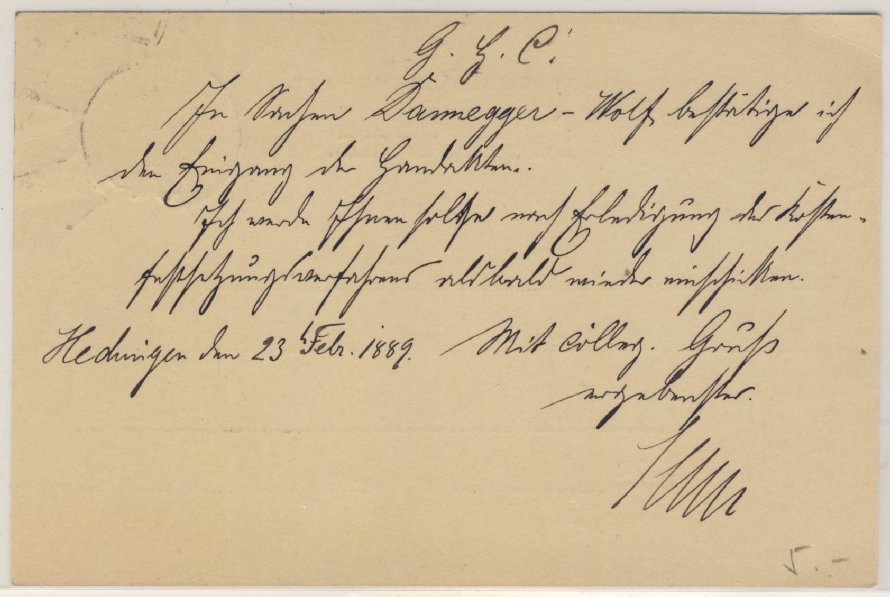 G. H. C.!
In Sachen Dannegger - Wolf bestätige ich
den Eingang der Handakten.
Ich werde Ihnen solche nach Erledigung des Kosten-
festsetzungsverfahrens alsbald wieder einschicken.
Hechingen den 23 Febr. 1889. Mit colleg. Gruß
ergebenster.
5.-